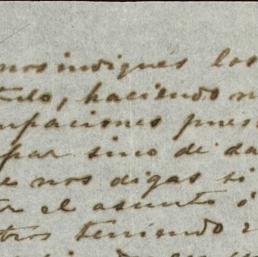 nos indiques los
tulo, haciendo
upaciones pues
par sino de da
e nos digas si
el asunto ó
tros teniendo